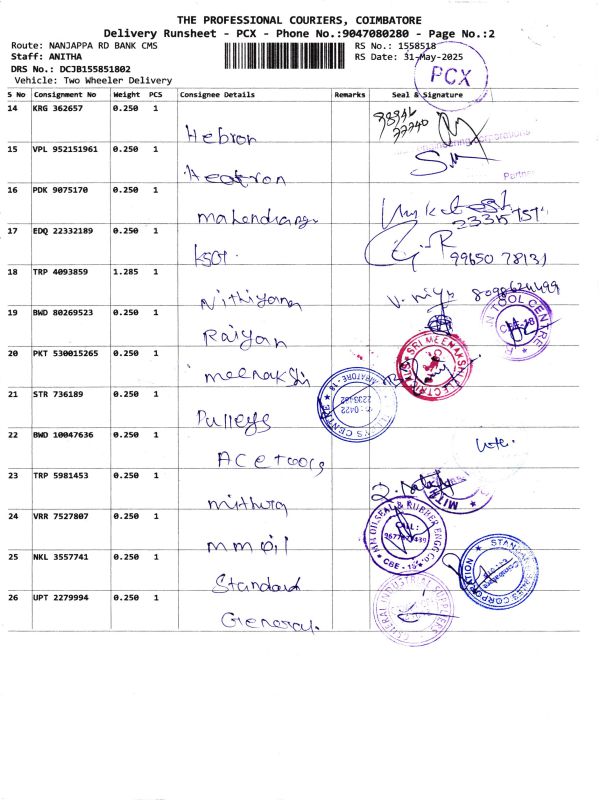 THE PROFESSIONAL COURIERS, COIMBATORE
Delivery Runsheet - PCX - Phone No.:9047080280 - Page No.:2
Route: NANJAPPA RD BANK CMS
RS No.: 1558518
Staff: ANITHA
RS Date: 31-May-2025
DRS No.: DCJB155851802
Vehicle: Two Wheeler Delivery
PCX
S No Consignment No Weight PCS Consignee Details Remarks Seal & Signature
14 KRG 362657 0.250 1
Hebron
15 VPL 952151961 0.250 1
Engineering Corporations
Partner
16 PDK 9075170 0.250 1
17 EDQ 22332189 0.250 1
KSOT.
99650 78131
18 TRP 4093859 1.285 1
Nithiyana
19 BWD 80269523 0.250 1
Raiyan
TOOL CENTRE
20 PKT 530015265 0.250 1
meenakshi
SRI MEENAKSHI ELECTRICALS
21 STR 736189 0.250 1
Pulleys
22 BWD 10047636 0.250 1
ACE Tools
23 TRP 5981453 0.250 1
mithura
24 VRR 7527807 0.250 1
mm oil
MM OILSEAL & RUBBER ENGG Co.
CELL:
CBE - 18
25 NKL 3557741 0.250 1
Standard
STANDARD SALES CORPORATION
Coimbatore
26 UPT 2279994 0.250 1
General.
GENERAL INDUSTRIAL SUPPLIERS